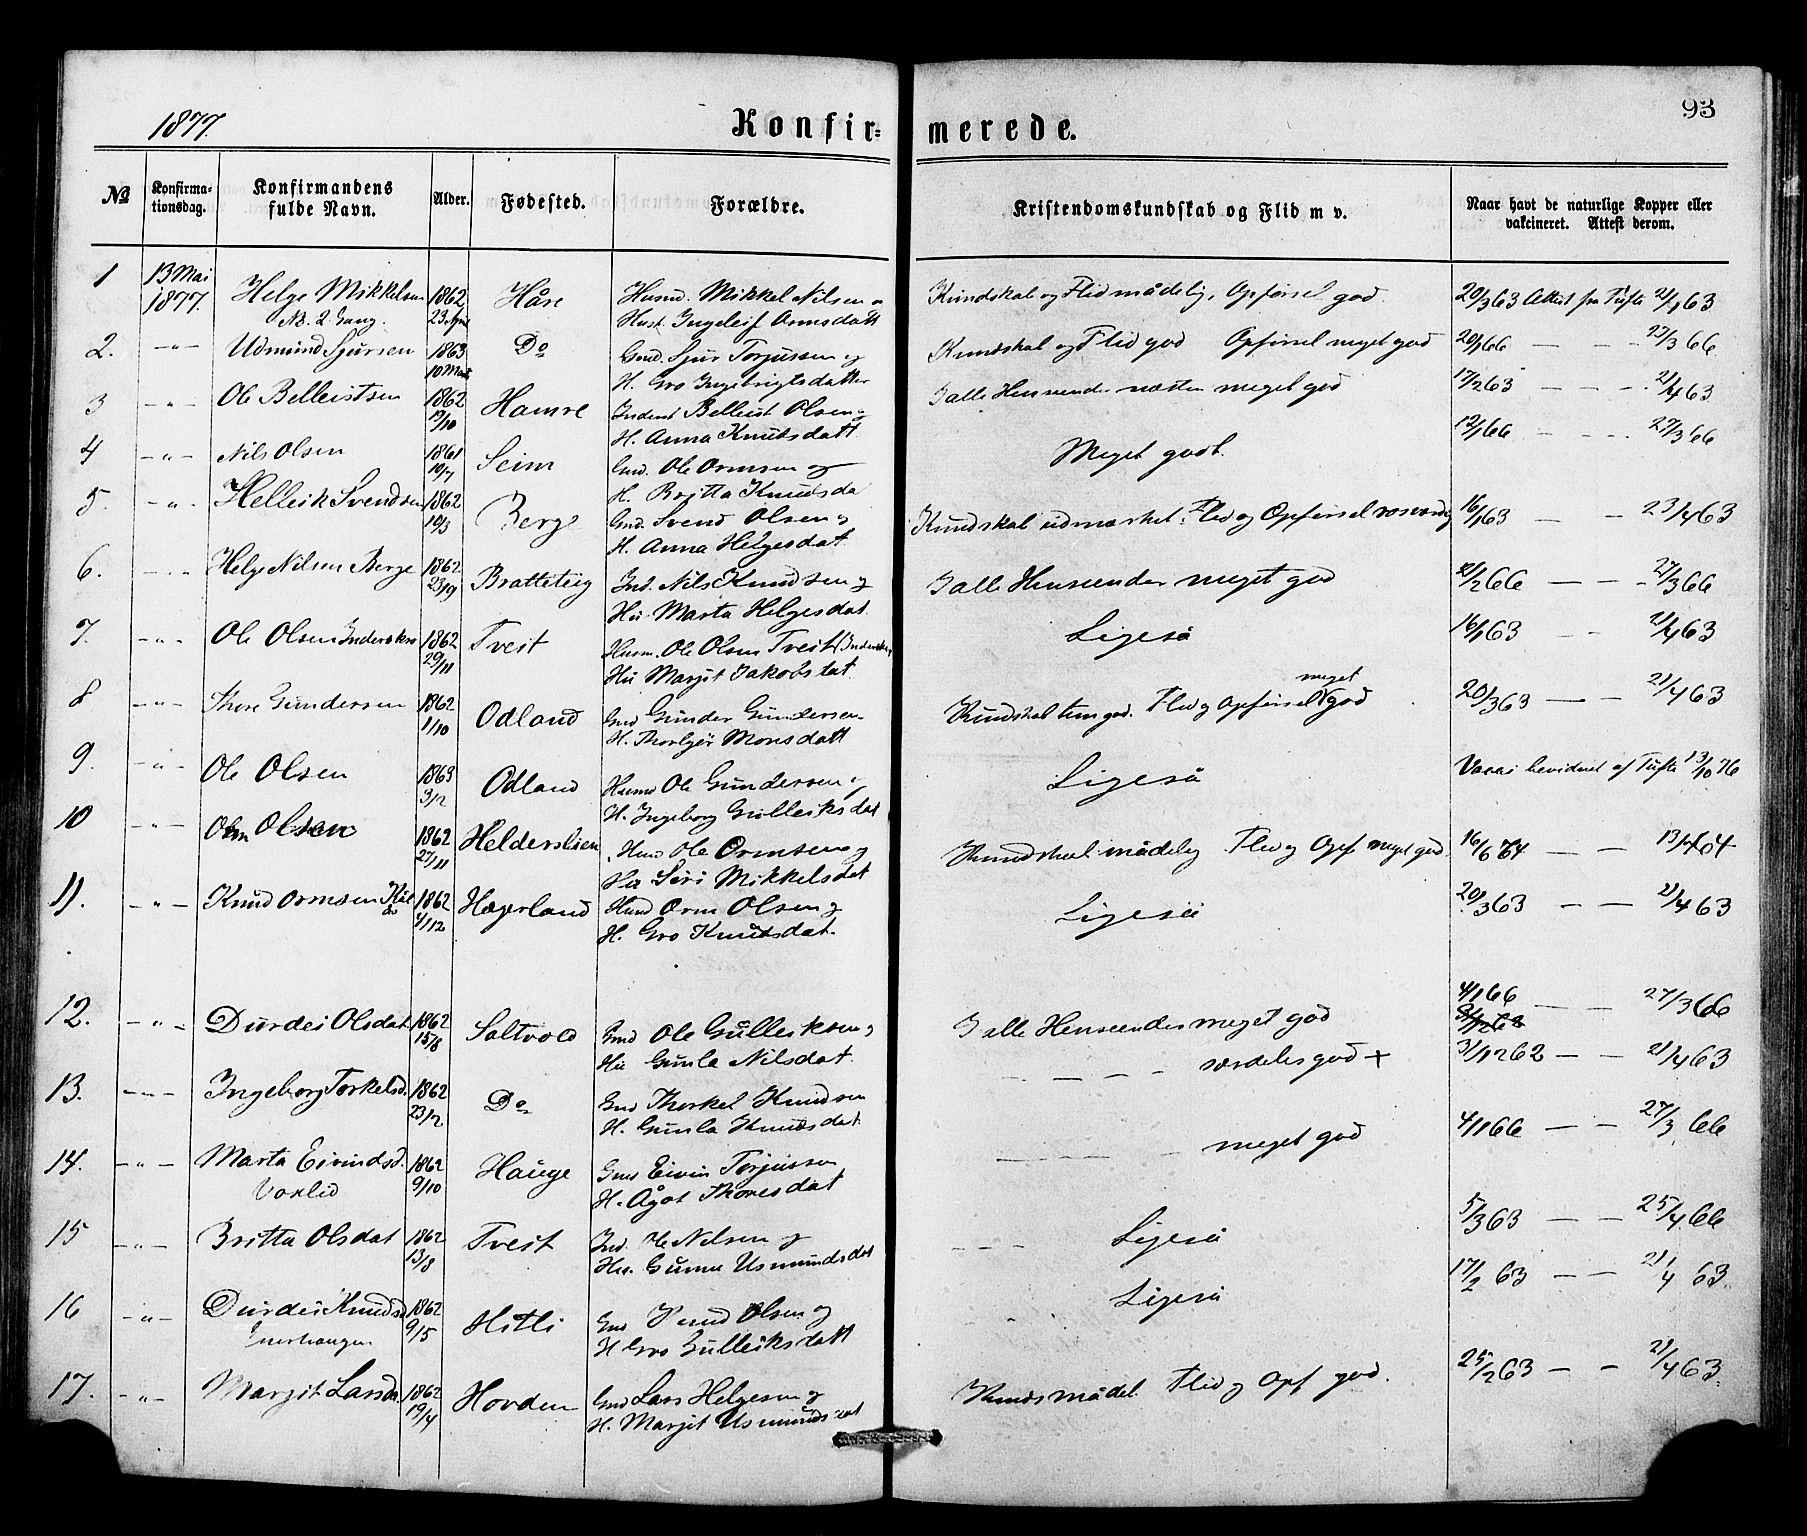 93
1877. Konfir= merede.
№ Konfirma-tionsdag. Konfirmandens fulde Navn. Alder. Fødested. Forældre. Kristendomskundskab og Flid m v. Naar havt de naturlige Kopper eller vakcineret. Attest derom.
1 13 Mai 1877. Helge Mikkelsen 1862 Håre Husm. Mikkel Nilsen o Kundskab og Flid mådelig, Opførsel god. 20/3 63 Attest fra Tufte 21/4 63
No. 2. Gang. 23 April Hust. Ingeleif Ormsdatt
2. -"- Udmund Sjursen 1863 Do Gmd. Sjur Torjussen og Kundskab og Flid god Opførsel meget god 20/1 66 — — 27/3 66
10 Mart H. Gro Ingebrigtsdatter
3 -"- Ole Belleistsen 1862 Hamre Inderst Belleist Olsen o I alle Henseender næsten meget god 17/2 63 — — 21/4 63
12/10 H. Anna Knutsdatt
4 -"- Nils Olsen 1861 Seim Gmd. Ole Ormsen og Meget godt. 12/1 66 — — 27/3 66
19/7 H. Britta Knudsda
5. -"- Hellesik Svendsen 1862 Berge Gmd. Svend Olsen o Kundskab udmærket. Flid og Opførsel rosværdig 16/1 63 — — 23/4 63
19/3 H. Anna Helgesdat
6. -"- Helge Nilsen Berge 1862 Bratteteig Ind. Nils Knudsen og I alle Henseender meget god 2/2 66 — — 27/3 66
23/9 Hu. Marta Helgesdat.
7. -"- Ole Olsen 1862 Tveit Husm. Ole Olsen Tveit Ligeså 16/1 63 — 21/4 63
29/11 Hu Margit Jakobsdat.
8 -"- Thore Gundersen 1862 Odland Gmd Gunder Gundersen Kundskab temgod. Flid og Opførsel meget god 20/3 63 — — 21/4 63
1/10 H. Thorbjør Monsdatt
9. -"- Ole Olsen 1863 Odland Husmd Ole Gundersen o Ligeså Vacci bevidnet af Tufte 13/10 76
3/2 H. Ingeborg Gulleiksdat
10 -"- Orm Olsen 1862 Helderslien Husmd Ole Ormsen o Kundskab mådelig Flid og Opf meget god. 16/6 64 — —
27/11 Hu Siri Mikkelsdat
11. -"- Knud Ormsen 1862 Hægerland Husmd Orm Olsen o Ligeså 20/3 63 — — 21/4 63
4/12 H. Gro Knutsdat.
12. -"- Durdei Olsdat 1862 Saltvold Gmd Ole Gulleiksen o I alle Henseender meget god 4/1 66 — 27/3 66
15/8 Hu Gunla Nilsdat.
13. -"- Ingeborg Torkelsd. 1862 Do Gmd Thorkel Knudsen — — — særdeles god + 31/12 62 — — 21/4 63
23/2 H. Gunla Knudsdat.
14. -"- Marta Eivindsd. 1862 Hauge Gmd Eivin Torjussen — — — meget god 4/1 66 — — 27/3 66
Voxlid 9/10 H. Ågot Thoresdat
15 -"- Britta Olsdat 1862 Tveit Ind. Ole Nilsen og — — — Ligeså 5/3 63 — — 25/4 66
13/8 Hu. Gunna Usmundsdat
16 -"- Durdei Knudsd 1862 Hitli Gmd Knud Olsen og Ligeså 17/2 63 — — 21/4 63
9/5 H Gro Gulleiksdatt
17. -"- Margit Larsda 1862 Hovden Gmd Lars Helgesen og Kundsmådel. Flid og Opf god. 25/2 63 — — 21/4 63.
19/4 H. Margit Usmundsdat